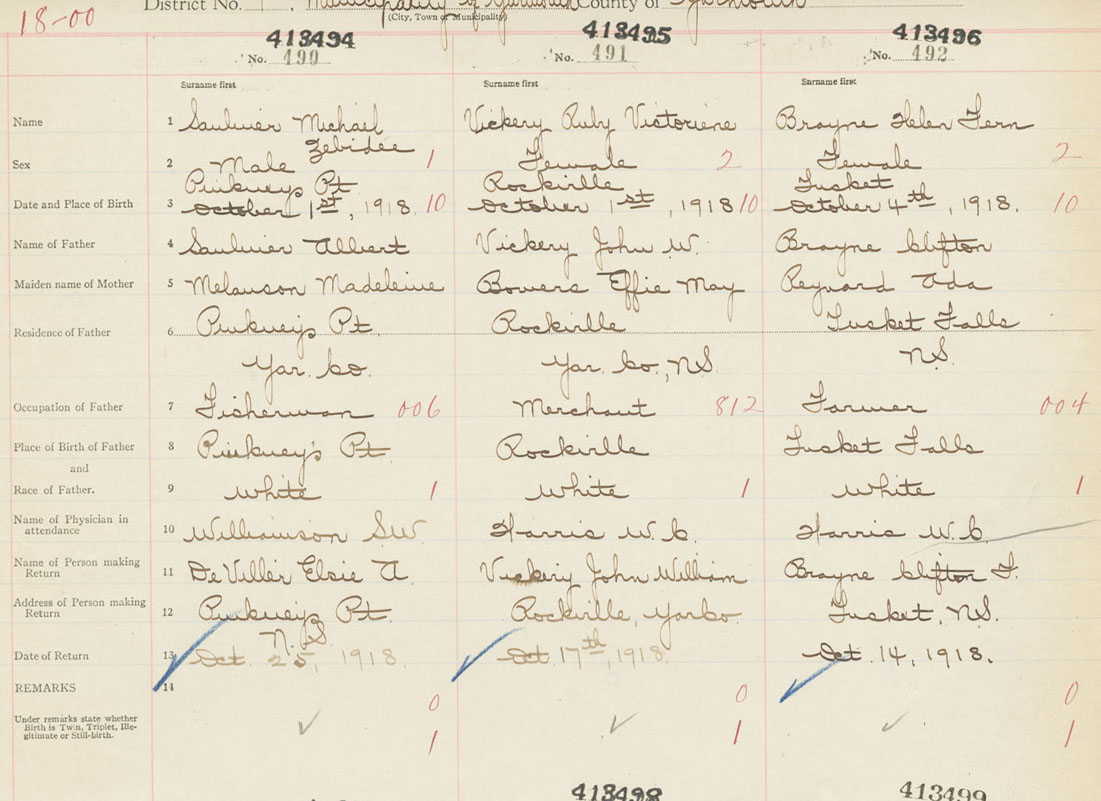 18-00
District No. 1, Municipality of Yarmouth County of Yarmouth
(City, Town or Municipality)
413494 413495 413496
No. 490 No. 491 No. 492
Surname first Surname first Surname first
Name 1 Saulnier Michael Zebidee Vickery Ruby Victoriene Brayne Helen Fern
Sex 2 Male 1 Female 2 Female 2
Pinkney's Pt Rockville Tusket
Date and Place of Birth 3 October 1st, 1918. 10 October 1st, 1918 10 October 4th, 1918. 10
Name of Father 4 Saulnier Albert Vickery John W. Brayne Clifton
Maiden name of Mother 5 Melanson Madeleine Bowers Effie May Reynard Ada
Residence of Father 6 Pinkney's Pt. Rockville Tusket Falls
Yar. Co. Yar. Co., N.S. N.S.
Occupation of Father 7 Fisherman 006 Merchant 812 Farmer 004
Place of Birth of Father 8 Pinkney's Pt. Rockville Tusket Falls
and
Race of Father. 9 White 1 White 1 White 1
Name of Physician in attendance 10 Williamson S.W. Harris W. C. Harris W. C.
Name of Person making Return 11 DeViller Elsie A. Vickery John William Brayne Clifton F.
Address of Person making Return 12 Pinkney's Pt. Rockville, Yar Co. Tusket, N.S.
N.S
Date of Return 13 Oct. 25, 1918. Oct. 17th, 1918. Oct. 14, 1918.
REMARKS 14
0 0 0
Under remarks state whether
Birth is Twin, Triplet, Ille-
gitimate or Still-birth.
1 1 1
413498 413499